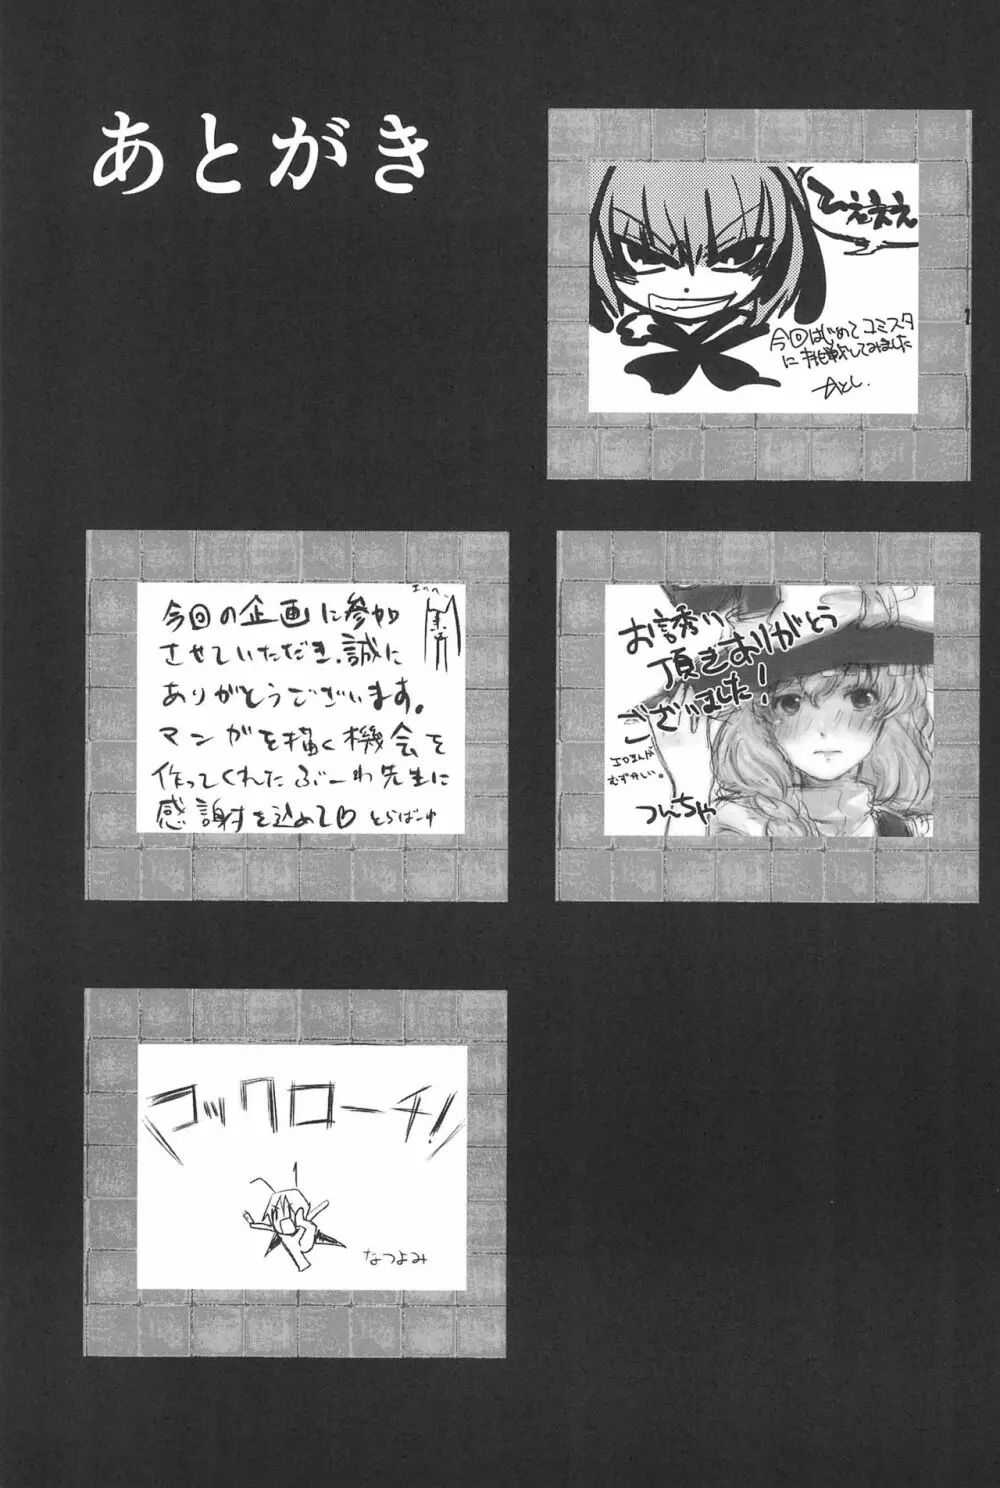 あとがき
ひえええ
今回はじめてコミスタ
に挑戦してみました
エヘヘ
今回の企画に参加
させていただき、誠に
ありがとうございます。
マンガを描く機会を
作ってくれたぶーわ先生に
感謝を込めて♡ とらばーゆ
お誘い
頂きありがとう
ございました！
エロまんが
むずかしい。
つんちゃ
コックローチ！
なつよみ